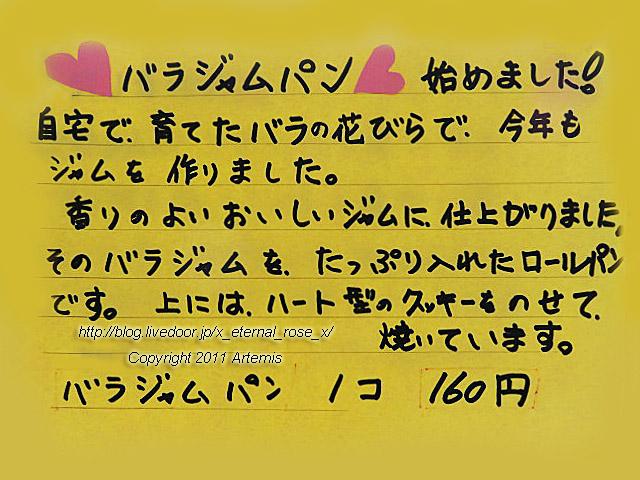 バラジャムパン 始めました!
自宅で、育てたバラの花びらで、今年も
ジャムを作りました。
香りのよいおいしいジャムに、仕上がりました。
そのバラジャムを、たっぷり入れたロールパン
です。上には、ハート型のクッキーをのせて、
http://blog.livedoor.jp/x_eternal_rose_x/
焼いています。
Copyright 2011 Artemis
バラジャムパン 1コ 160円